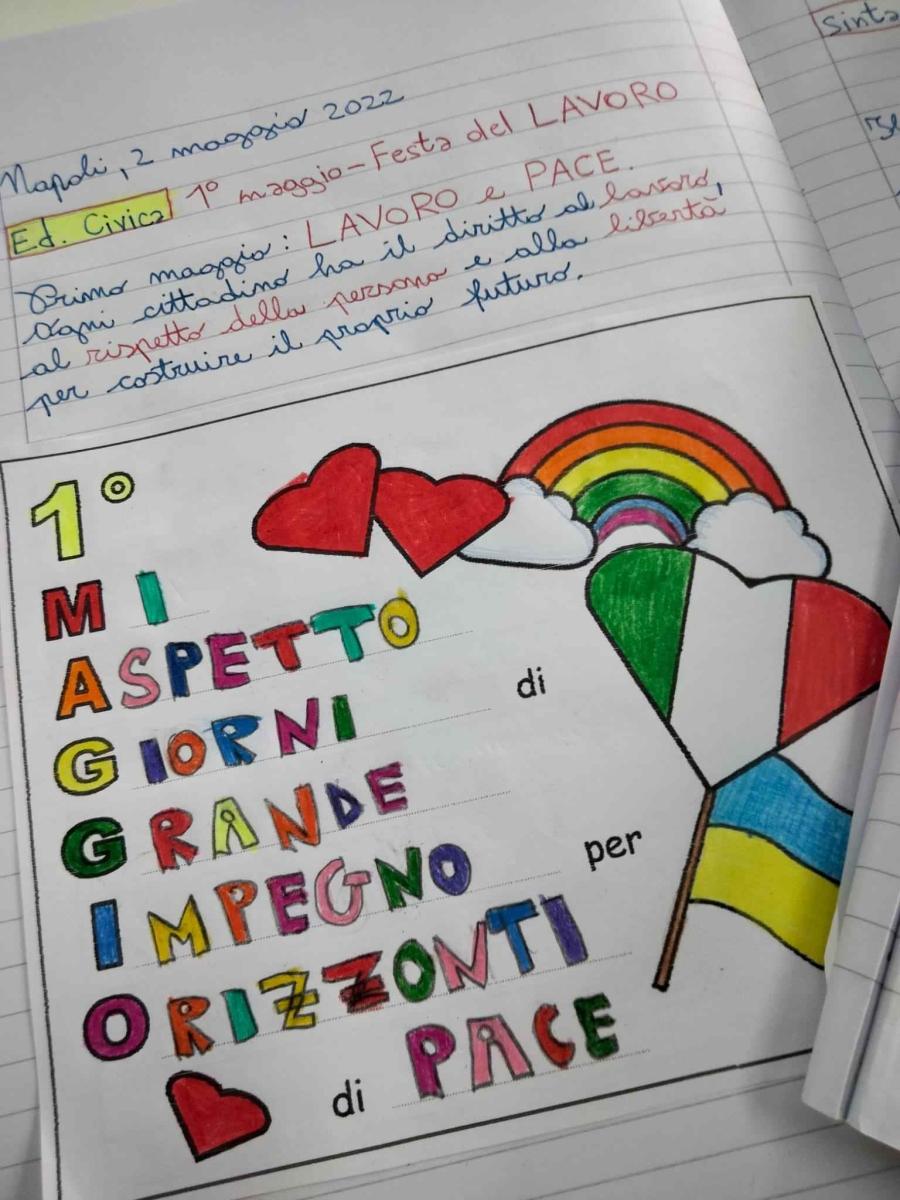 Napoli, 2 maggio 2022
Ed. Civica 1° maggio - Festa del LAVORO
Primo maggio: LAVORO e PACE.
Ogni cittadino ha il diritto al lavoro,
al rispetto della persona e alla libertà
per costruire il proprio futuro.
1°
MI
ASPETTO
GIORNI di
GRANDE
IMPEGNO per
ORIZZONTI
di PACE
Sinta